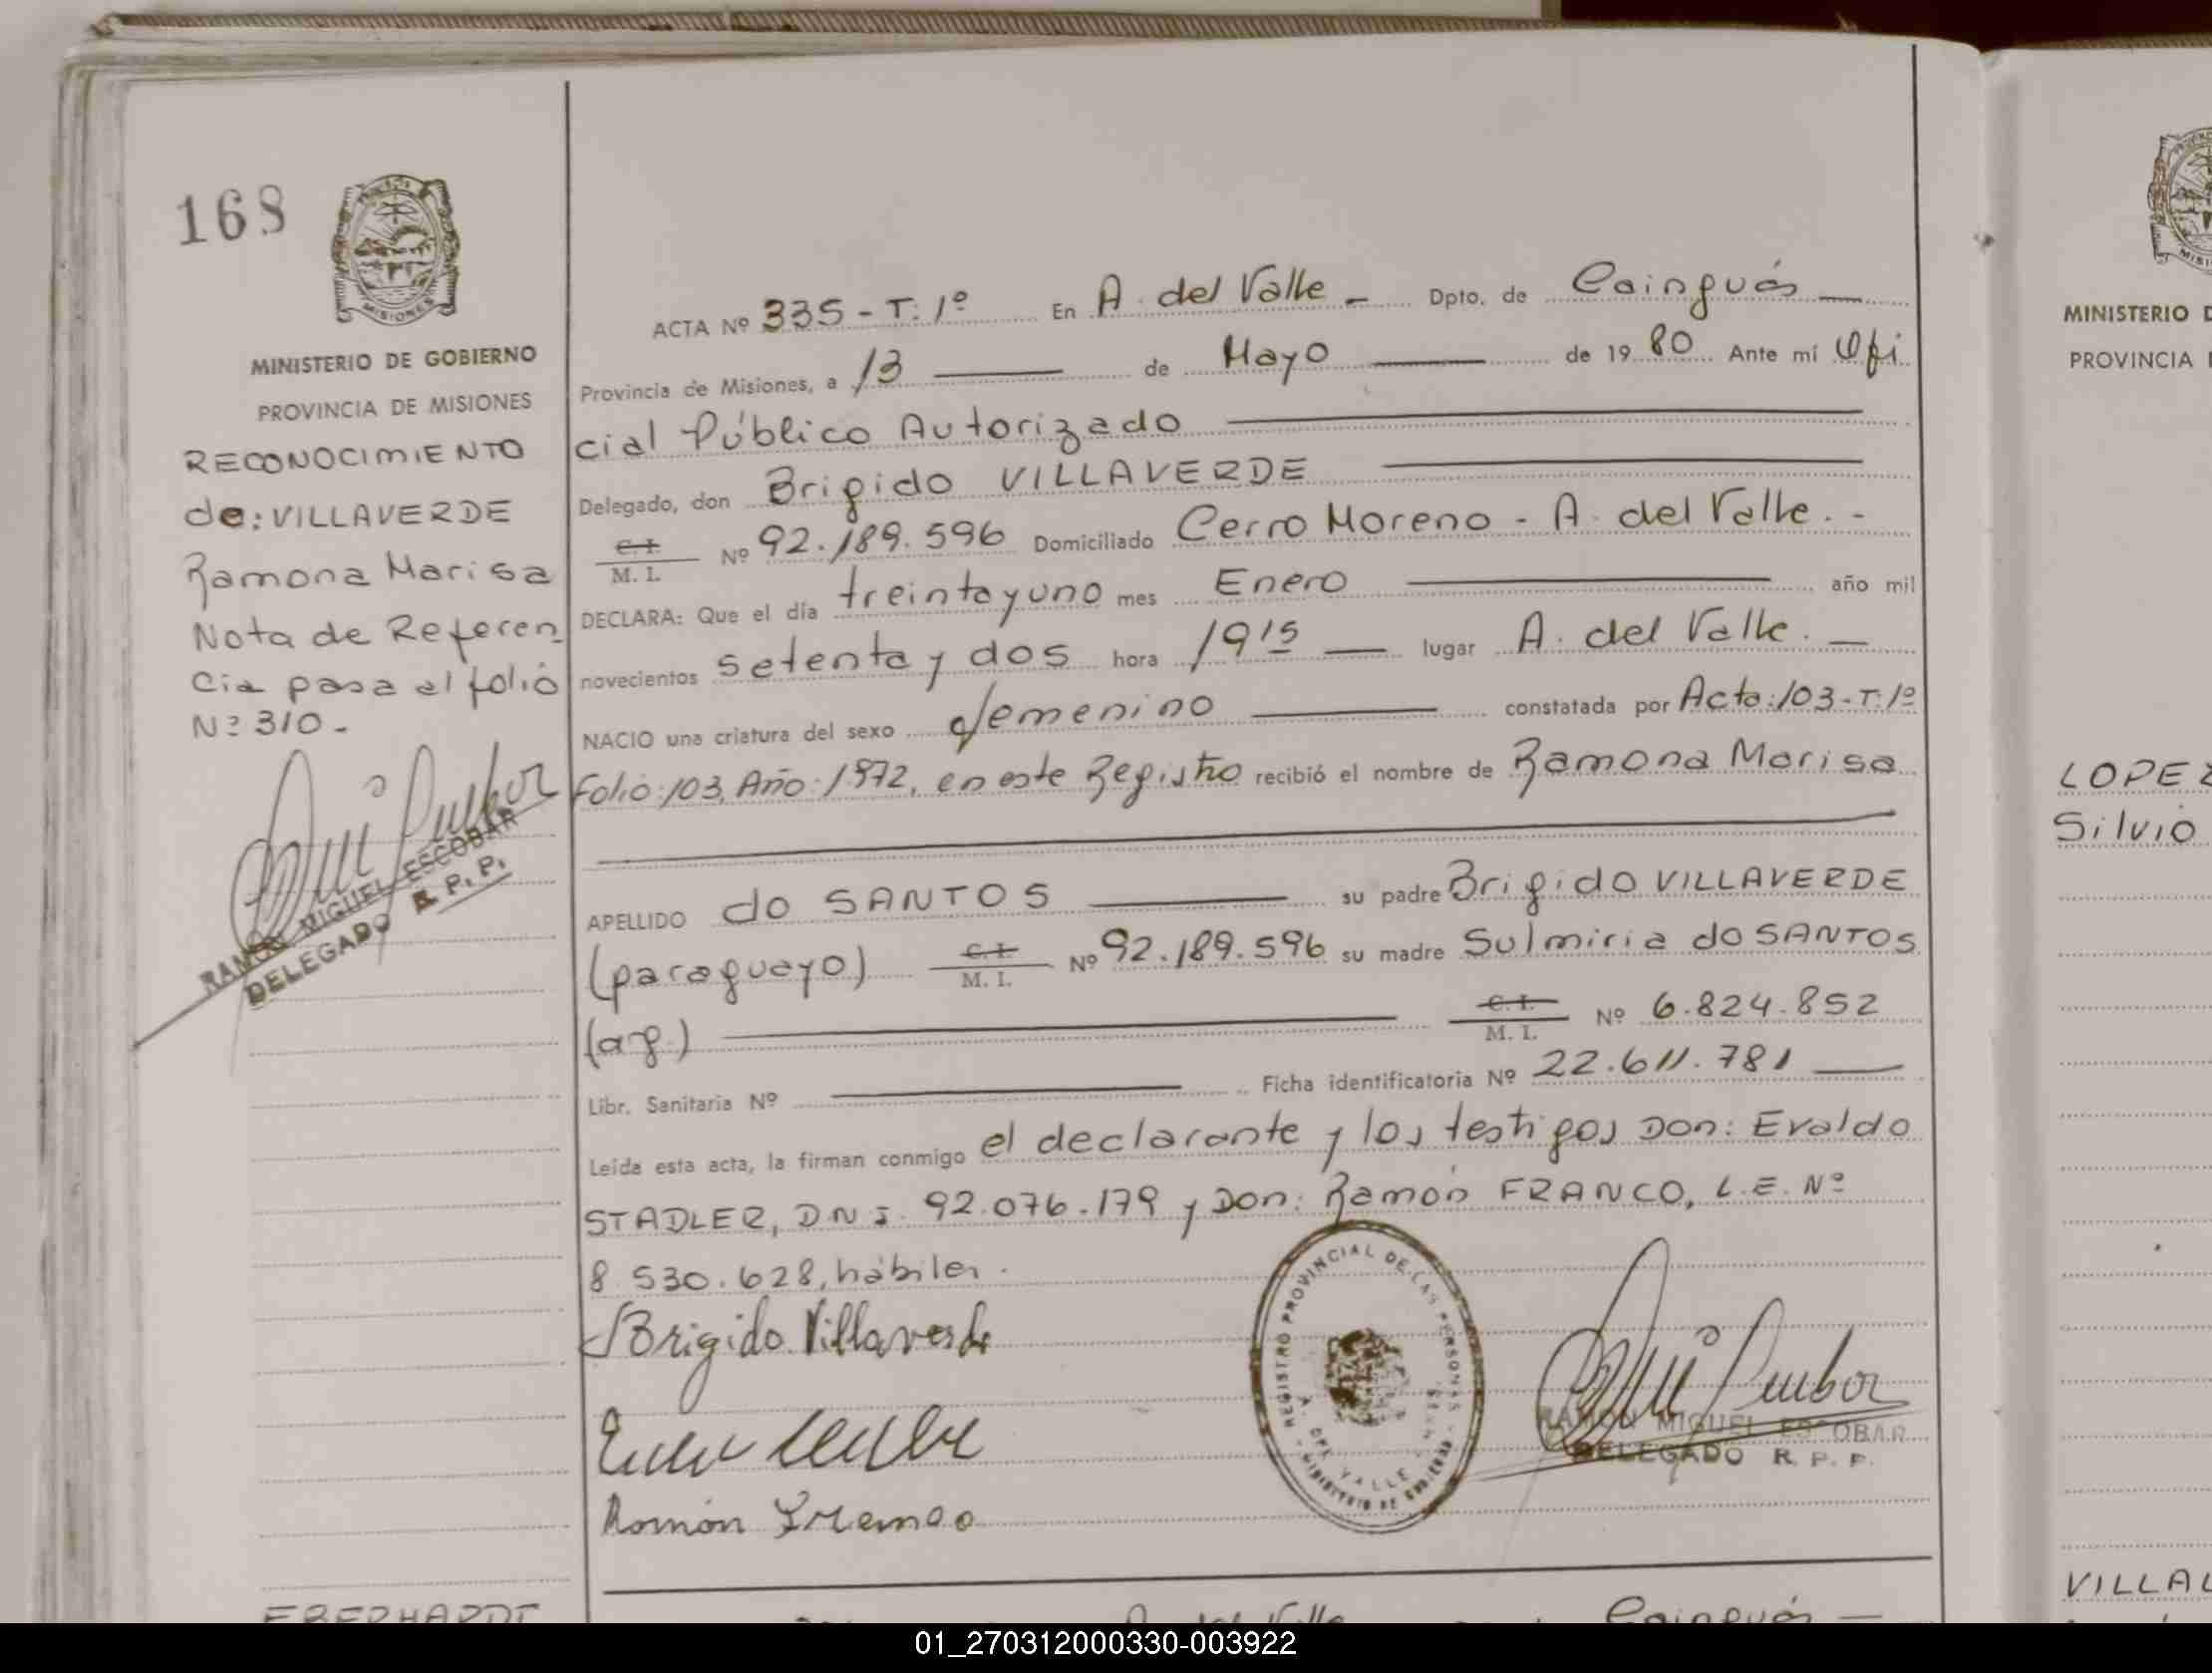 168
MISIONES
MINISTERIO DE GOBIERNO
PROVINCIA DE MISIONES
RECONOCIMIENTO
de: VILLAVERDE
Ramona Marisa
Nota de Referen
cia pasa al folio
Nº 310 -
RAMON MIGUEL ESCOBAR
DELEGADO R. P. P.
EBERHARDT
ACTA Nº 335 - T: 1º En A. del Valle - Dpto. de Cainguás
Provincia de Misiones, a 13 de Mayo de 1980 Ante mí Ofi
cial Público Autorizado
Delegado, don Brigido VILLAVERDE
C. I.
M. I. Nº 92.189.596 Domiciliado Cerro Moreno - A. del Valle. -
DECLARA: Que el día treinta y uno mes Enero año mil
novecientos setenta y dos hora 19 15 lugar A. del Valle. -
NACIO una criatura del sexo femenino constatada por Acta: 103 - T: 1º
Folio: 103, Año: 1972, en este Registro recibió el nombre de Ramona Marisa
APELLIDO do SANTOS su padre Brigido VILLAVERDE
(paraguayo) C. I.
M. I. Nº 92.189.596 su madre Sulmiria do SANTOS
(arg.) C. I.
M. I. Nº 6.824.852
Libr. Sanitaria Nº Ficha identificatoria Nº 22.611.781
Leída esta acta, la firman conmigo el declarante y los testigos Don: Evaldo
STADLER, DNI. 92.076.179 y Don: Ramón FRANCO, L.E. Nº
8.530.628, hábiles.
Brigido Villaverde
Ramón Franco
REGISTRO PROVINCIAL DE LAS PERSONAS
A. DEL VALLE
MINISTERIO DE GOBIERNO
RAMON MIGUEL ESCOBAR
DELEGADO R. P. P.
A. del Valle Cainguás
MINISTERIO D
PROVINCIA
LOPEZ
Silvio
VILLAL
01_270312000330-003922